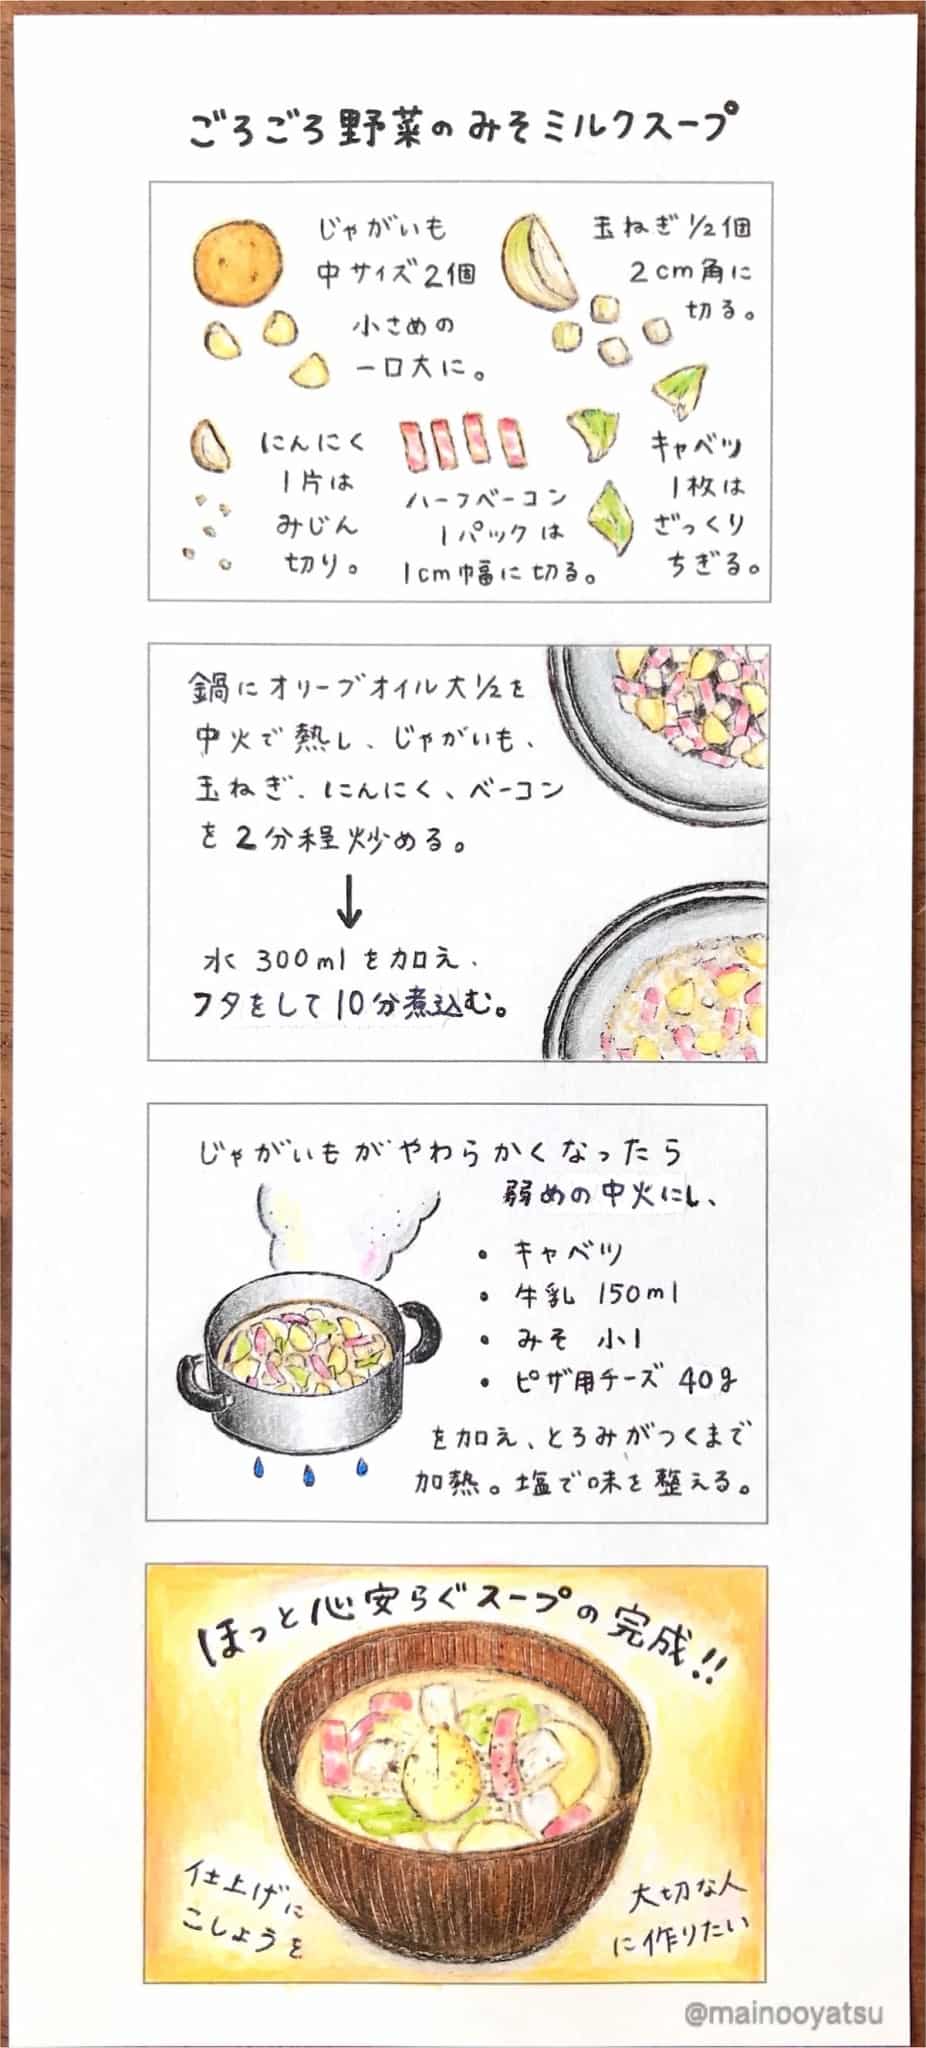 ごろごろ野菜のみそミルクスープ
じゃがいも
中サイズ2個
小さめの
一口大に。
玉ねぎ1/2個
2cm角に
切る。
にんにく
1片は
みじん
切り。
ハーフベーコン
1パックは
1cm幅に切る。
キャベツ
1枚は
ざっくり
ちぎる。
鍋にオリーブオイル大1/2を
中火で熱し、じゃがいも、
玉ねぎ、にんにく、ベーコン
を2分程炒める。
↓
水300mlを加え、
フタをして10分煮込む。
じゃがいもがやわらかくなったら
弱めの中火にし、
・キャベツ
・牛乳 150ml
・みそ 小1
・ピザ用チーズ 40g
を加え、とろみがつくまで
加熱。塩で味を整える。
ほっと心安らぐスープの完成!!
仕上げに
こしょうを
大切な人
に作りたい
@mainooyatsu